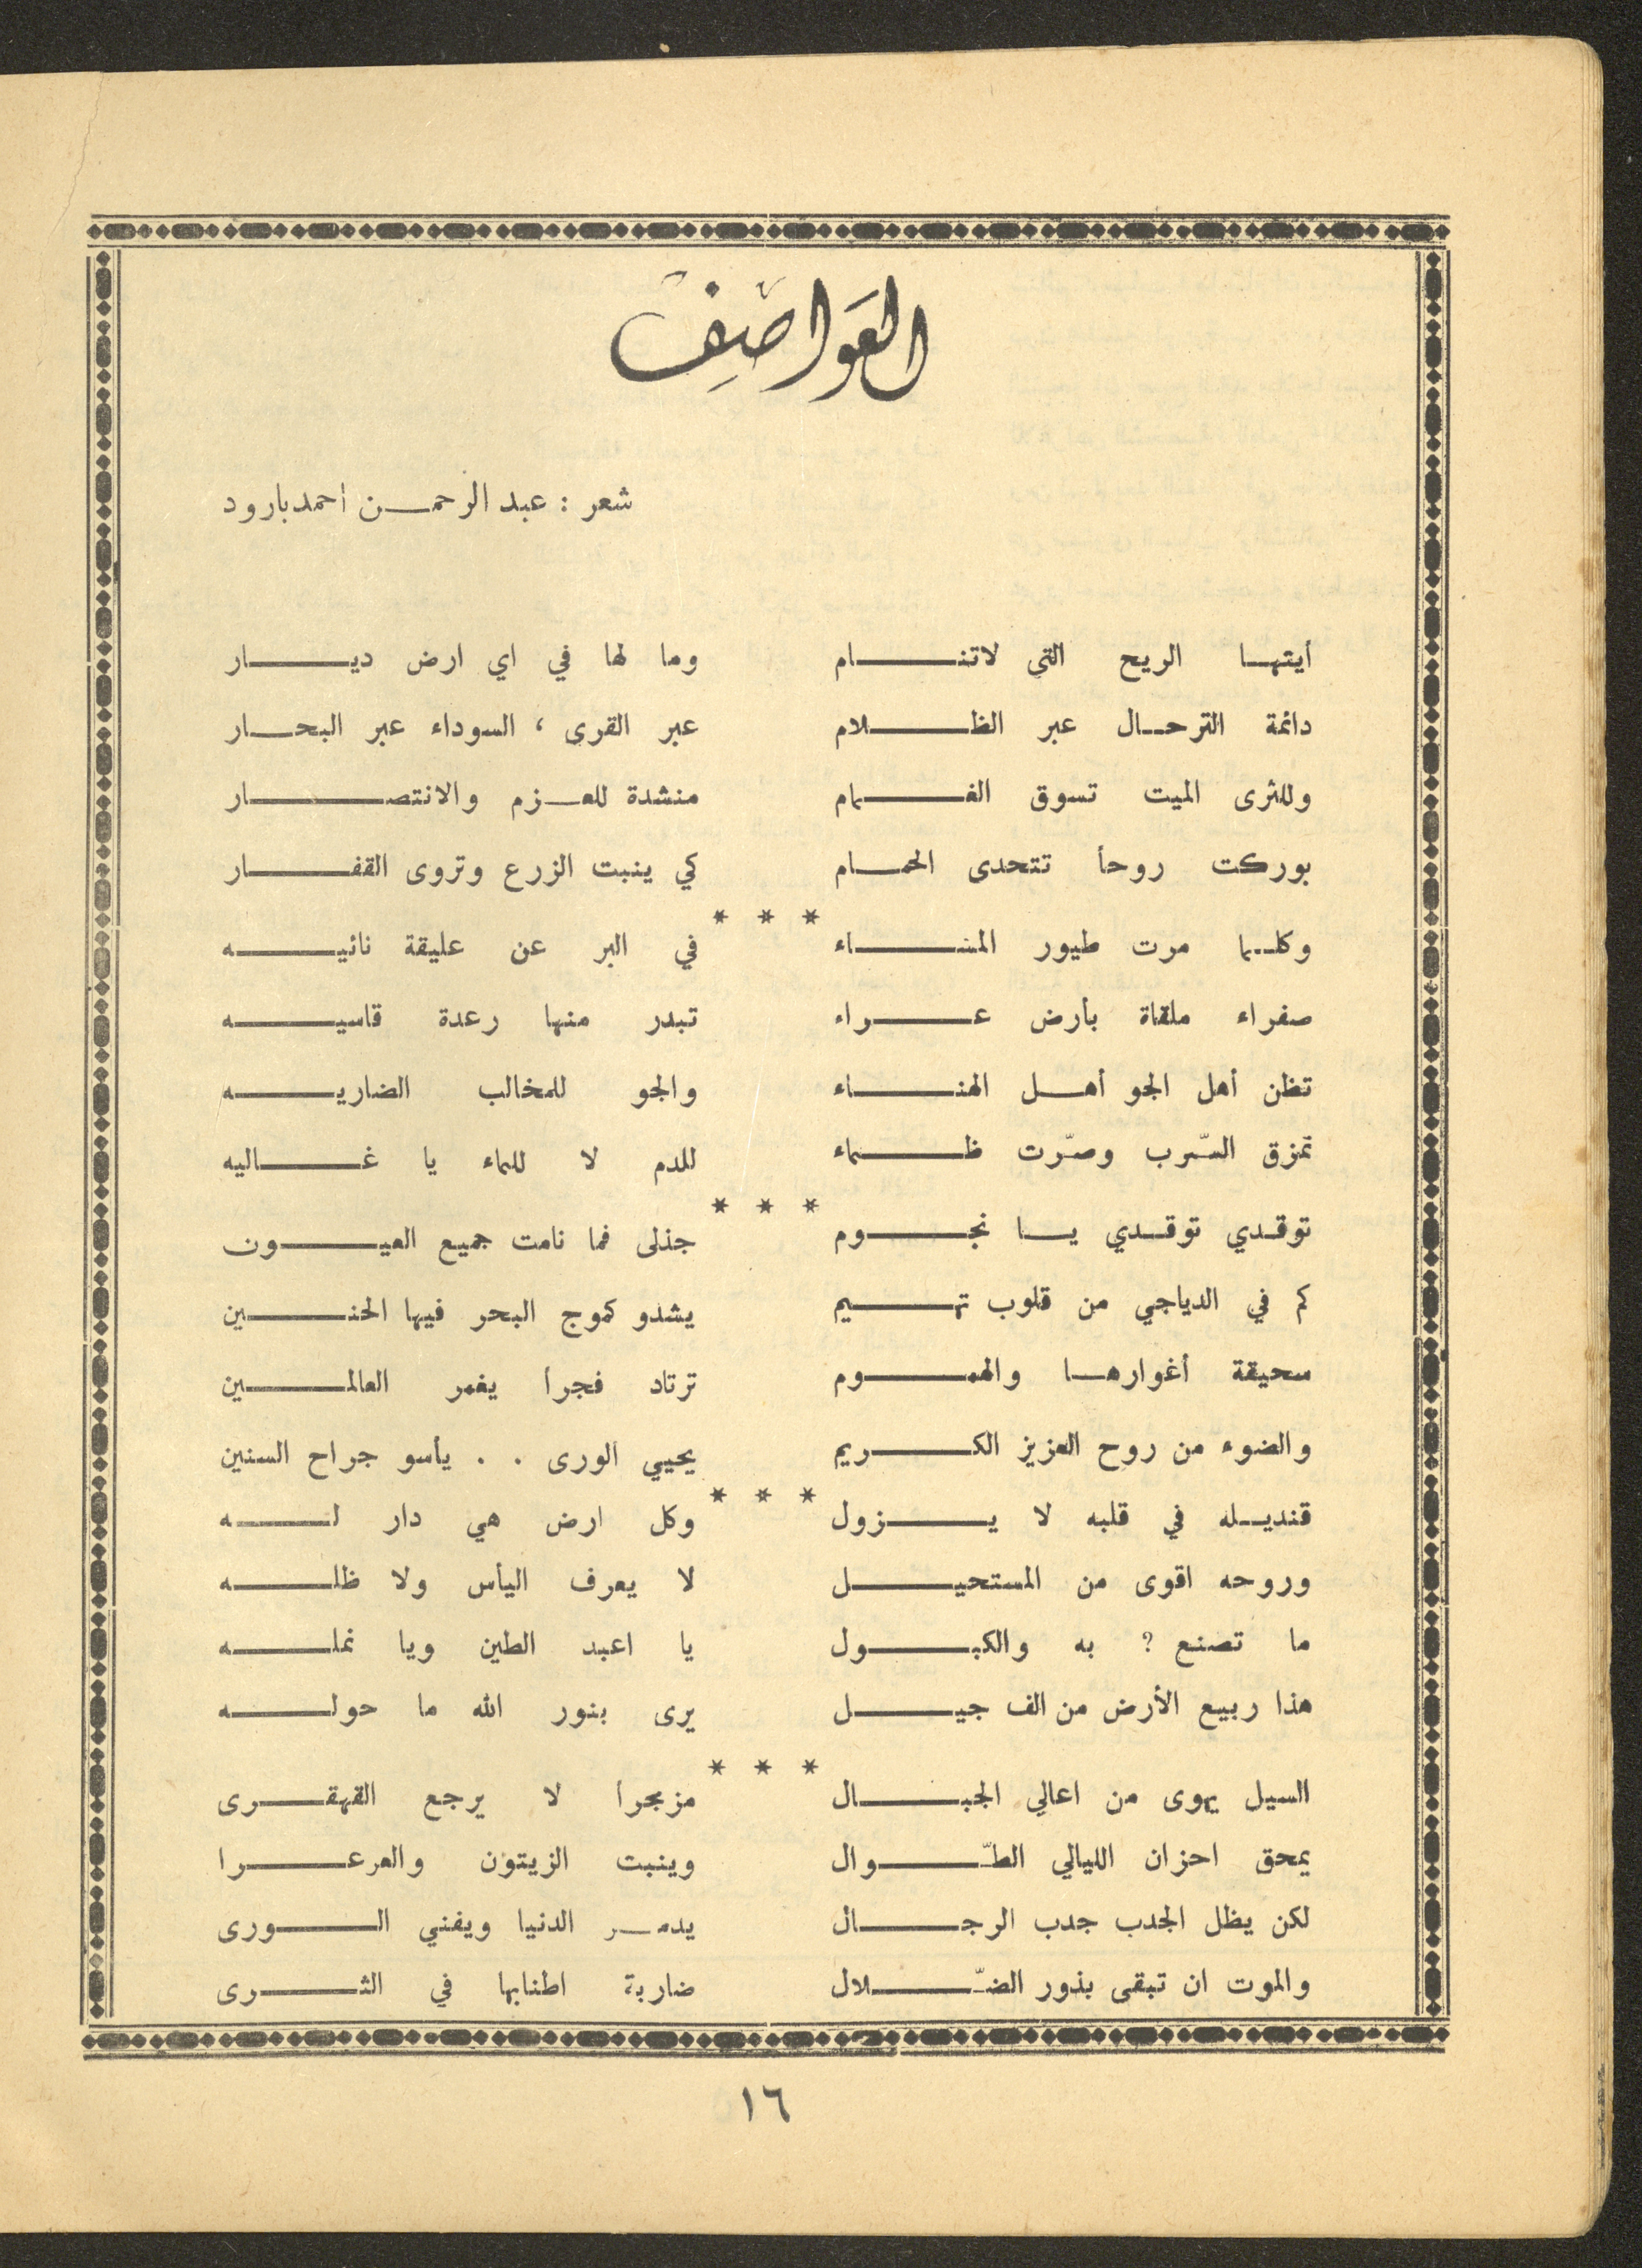 العَوَاصِفُ
شعر : عبد الرحمن احمد بارود
أيتها الريح التي لاتنام وما لها في اي ارض ديار
دائمة الترحال عبر الظلام عبر القرى ، السوداء عبر البحار
وللثرى الميت تسوق الغمام منشدة للعزم والانتصار
بوركت روحاً تتحدى الحمام كي ينبت الزرع وتروى القفار
* * *
وكلما مرت طيور المساء في البر عن عليقة نائيه
صفراء ملقاة بأرض عراء تبدر منها رعدة قاسيه
تظن أهل الجو أهل الهناء والجو للمخالب الضاريه
تمزق السّرب وصرّت ظماء للدم لا للماء يا غاليه
* * *
توقدي توقدي يا نجوم جذلى فما نامت جميع العيون
كم في الدياجي من قلوب تهيم يشدو كموج البحر فيها الحنين
سحيقة أغوارها والهموم ترتاد فجراً يغمر العالمين
والضوء من روح العزيز الكريم يحيي الورى . . يأسو جراح السنين
* * *
قنديله في قلبه لا يزول وكل ارض هي دار له
وروحه اقوى من المستحيل لا يعرف اليأس ولا ظله
ما تصنع ؟ به والكبول يا اعبد الطين ويا نمله
هذا ربيع الأرض من الف جيل يرى بنور الله ما حوله
* * *
السيل يهوى من اعالي الجبال مزمجراً لا يرجع القهقرى
يمحق احزان الليالي الطّوال وينبت الزيتون والعرعرا
لكن يظل الجدب جدب الرجال يدمر الدنيا ويفني الورى
والموت ان تبقى بذور الضّلال ضاربة اطنابها في الثرى
١٦